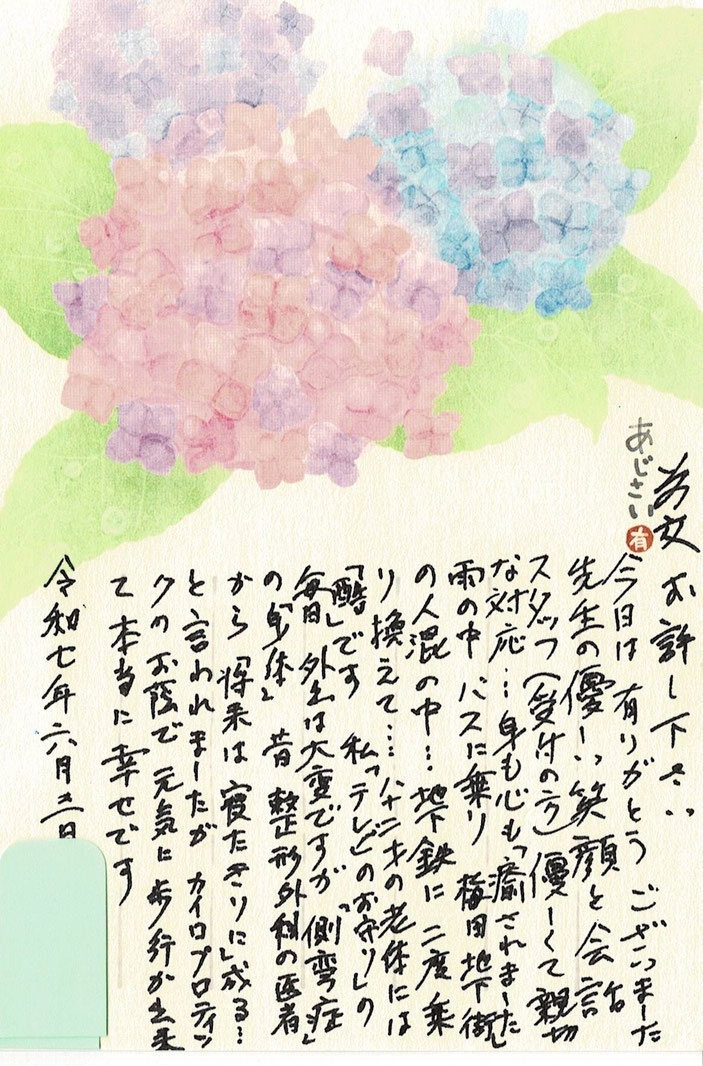 あじさい
有
乱文 お許し下さい
今日は 有りがとう ございました
先生の優しい笑顔と会話
スタッフ(受付の方)優しくて親切
な対応… 身も心も「癒されました」
雨の中 バスに乗り 梅田地下街
の人混の中… 地下鉄に 二度乗
り 換えて… 八十二才の老体には
「酷」です 私「テレビのお守り」の
毎日 外出は大変ですが「側弯症」
の「身体」 昔 整形外科の医者
から「将来は 寝たきりに」成る…
と言われましたが カイロプロティッ
クのお蔭で 元気に歩行が出来
て 本当に 幸せです
令和七年六月三日